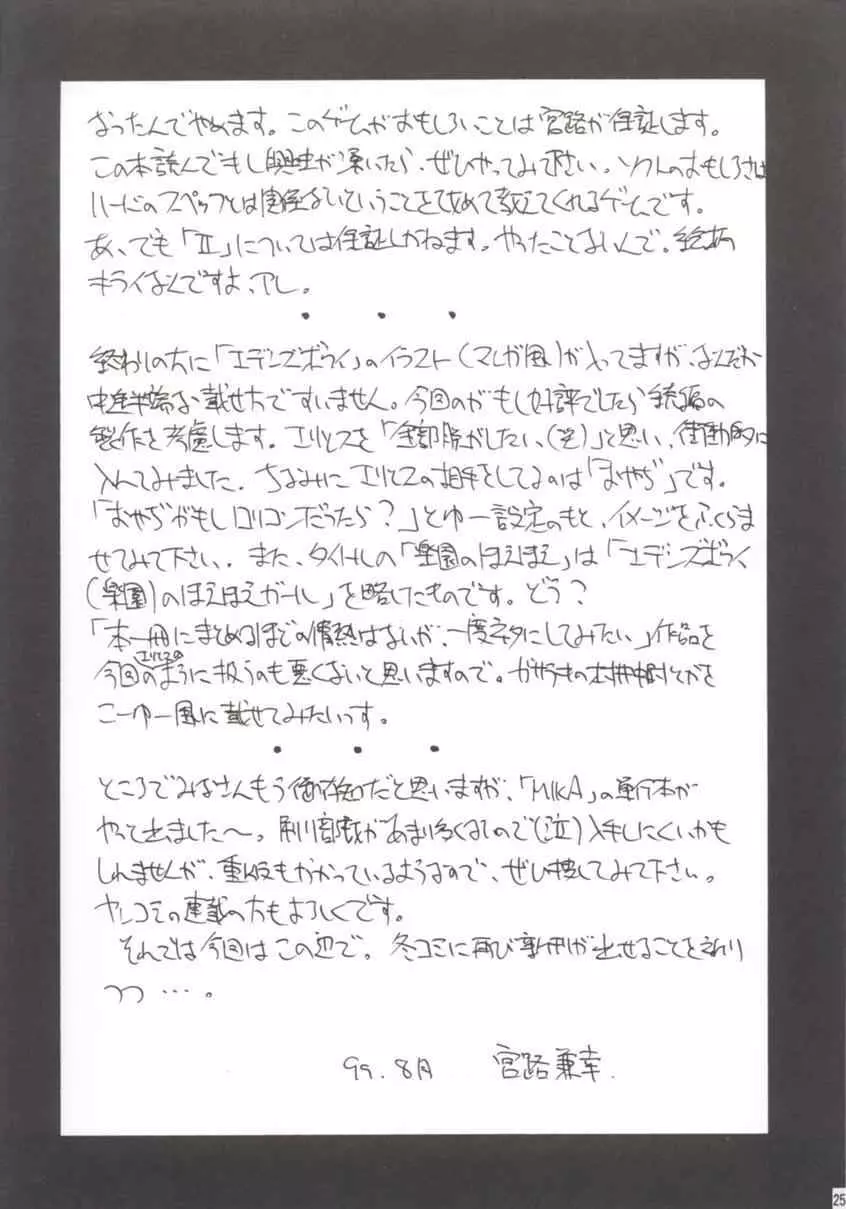 なったんでやめます。このゲームがおもしろいことは宮路が保証します。
この本読んでもし興味が湧いたら、ぜひやってみて下さい。ソフトのおもしろさは
ハードのスペックとは関係ないということを改めて教えてくれるゲームです。
あ、でも「Ⅱ」については保証しかねます。やったことないんで。絵柄
キライなんですよ、アレ。
・ ・ ・
終わりの方に「エデンズボゥイ」のイラスト（マンガ風）が入ってますが、なんだか
中途半端な載せ方ですいません。今回のがもし好評でしたら続編の
製作を考慮します。エリシスを「全部脱がしたい、（笑）」と思い、衝動的に
入れてみました。ちなみにエリシスの相手をしてるのは「おやぢ」です。
「おやぢがもしロリコンだったら？」とゆー設定のもと、イメージをふくらま
せてみて下さい。また、タイトルの「楽園のほえほえ」は「エデンズボゥイ
（楽園）のほえほえガール」を略したものです。どう？
「本一冊にまとめるほどの情熱はないが、一度ネタにしてみたい」作品を
今回のエリシスのように扱うのも悪くないと思いますので。ガサラキの とかを
こーゆー風に載せてみたいっす。
・ ・ ・
ところでみなさんもう御存知だと思いますが、「MIKA」の単行本が
やっと出ました〜。刷部数があまり多くないので（泣）入手しにくいかも
しれませんが、重版もかかっているようなので、ぜひ捜してみて下さい。
ヤンコミの連載の方もよろしくです。
それでは今回はこの辺で。冬コミに再び新刊が出せることを祈り
つつ…。
99.8月 宮路兼幸.
25